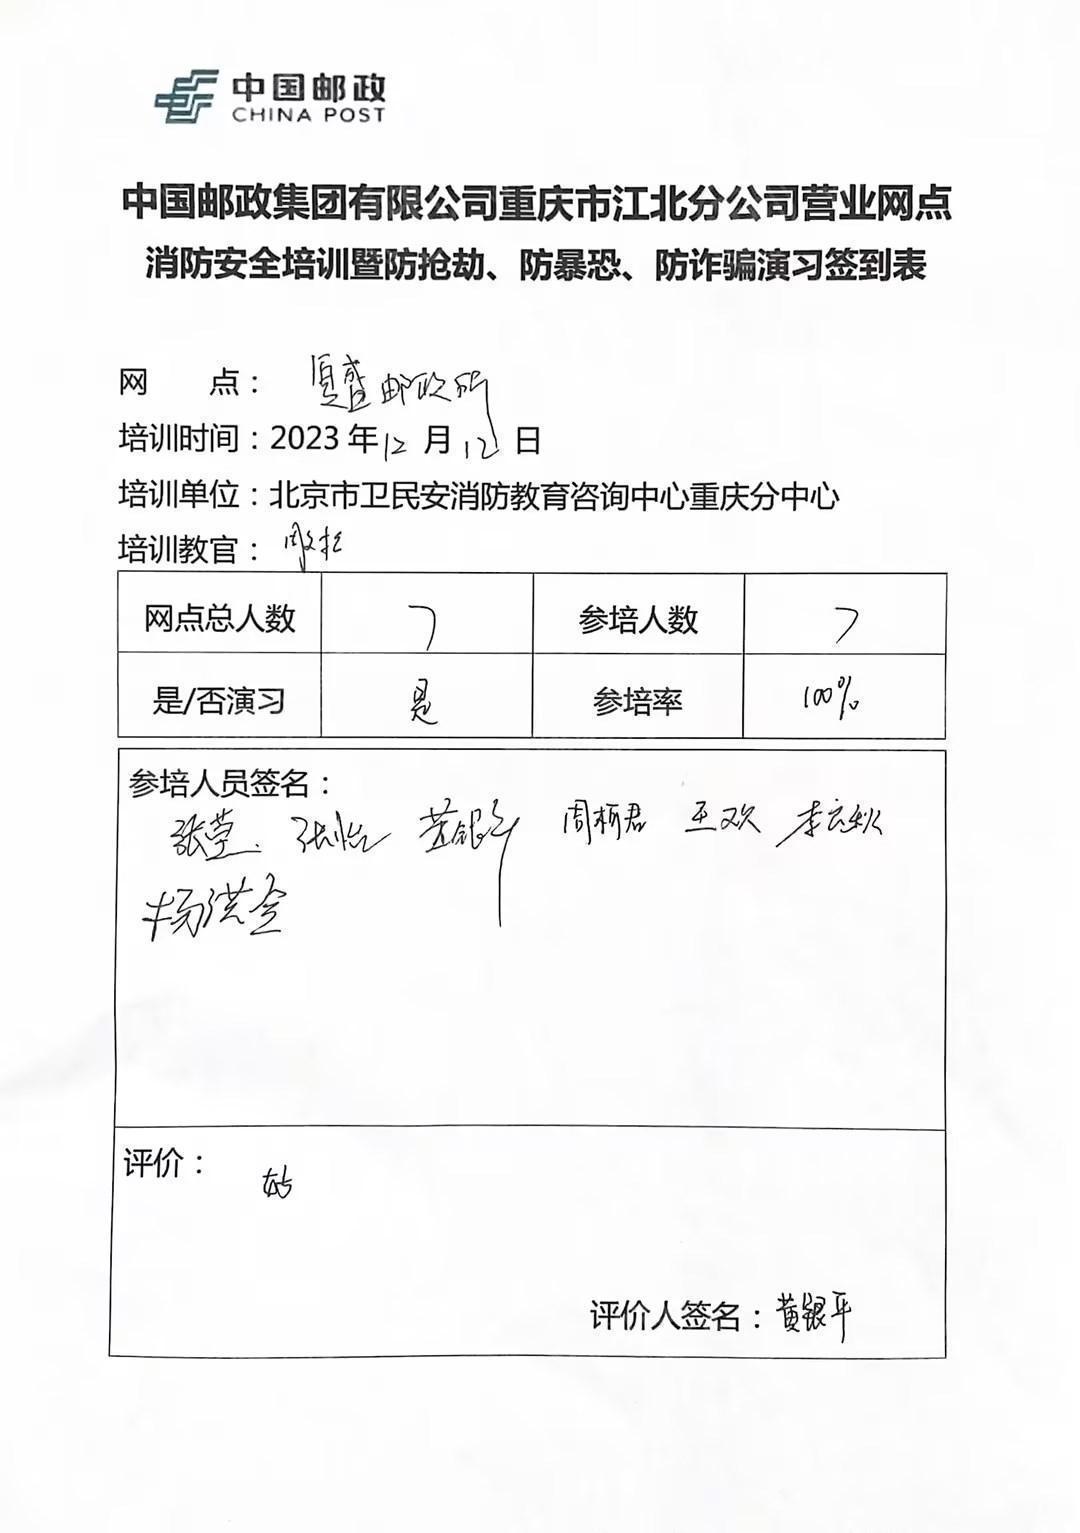 中国邮政
CHINA POST
中国邮政集团有限公司重庆市江北分公司营业网点
消防安全培训暨防抢劫、防暴恐、防诈骗演习签到表
网 点： 盛邮政所
培训时间：2023年12月12日
培训单位：北京市卫民安消防教育咨询中心重庆分中心
培训教官：周
网点总人数 7 参培人数 7
是/否演习 是 参培率 100%
参培人员签名：
张莹 张怡 黄银平 周栢君 王欢 李云秋
杨洪金
评价：
好
评价人签名：黄银平